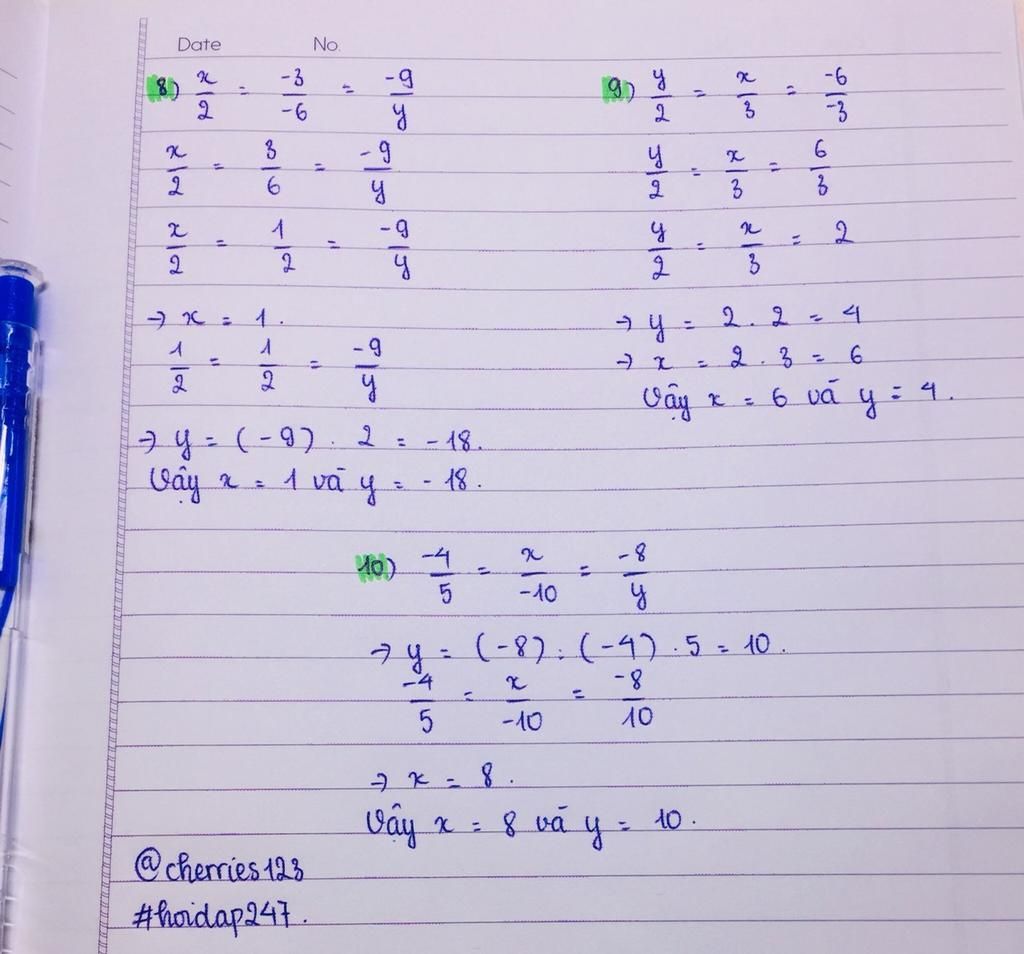 Date No.
8) x/2 = -3/-6 = -9/y
x/2 = 3/6 = -9/y
x/2 = 1/2 = -9/y
→ x = 1.
1/2 = 1/2 = -9/y
→ y = (-9) . 2 = -18.
Vậy x = 1 và y = -18.
9) y/2 = x/3 = -6/-3
y/2 = x/3 = 6/3
y/2 = x/3 = 2
→ y = 2 . 2 = 4
→ x = 2 . 3 = 6
Vậy x = 6 và y = 4.
10) -4/5 = x/-10 = -8/y
→ y = (-8) : (-4) . 5 = 10.
-4/5 = x/-10 = -8/10
→ x = 8.
Vậy x = 8 và y = 10.
@cherries123
#hoidap247.